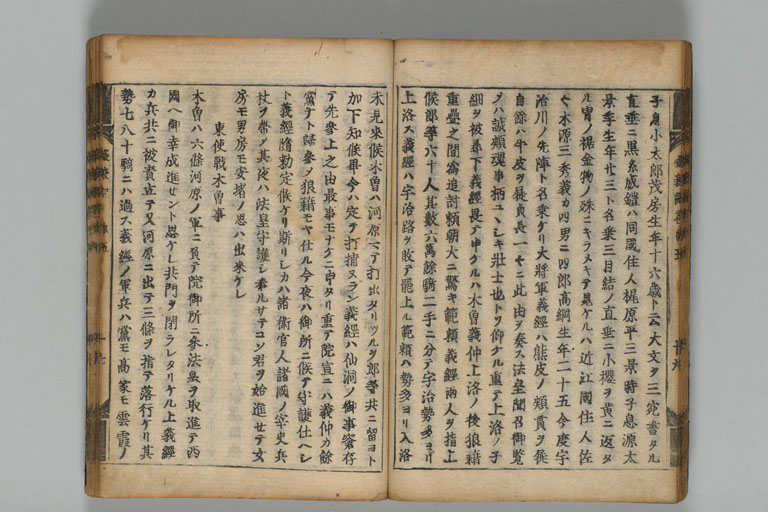 子息小太郎茂房生年十六歳ト云大文ヲ三宛書タル
直垂ニ黒糸威鎧ハ同國住人梶原平三景時子息源太
景季生年廿三ト名乗三目結ノ直垂ニ小櫻ヲ黄ニ返タ
ル冑ノ裾金物ノ殊ニキラメキテ見ケルハ近江國住人佐
々木源三秀義カ四男ニ四郎高綱生年二十五今度宇
治川ノ先陣ト名乗ケリ大将軍義經ハ熊皮ノ頬貫ヲ帯
自餘ハ牛皮ヲ此由ヲ奏ス法皇聞召御覧
ノハ誠頬魂事柄ユヽシキ壯士也トソ仰ケル重テ上洛ノ子
細ヲ被尋下義經畏テ申ケルハ木曽義仲上洛ノ後狼藉
重疊之間為追討頼朝大ニ驚キ範頼義經兩人ヲ指上
候郎等六十人其數六萬餘騎二手ニ分テ宇治勢多ヨリ
上洛ス義經ハ宇治路ヲ敗テ罷上ル範頼ハ勢多ヨリ入洛
未見來候木曽ハ河原マテ打出タリツルヲ郎等共ニ留ヨト
加下知候畢今ハ定テ打捕スラン義經ハ仙洞ノ御事窂存
テ先參上之由最事モナケニ申タリ重テ院宣ニハ義仲カ餘
黨ナト歸參ノ狼藉モヤ仕ル今夜ハ御所ニ候テ守護仕ヘシ
ト義經隨勅定候ケリ斯リシカハ諸衛官人諸國ノ宰吏兵
杖ヲ帯ノ其夜ハ法皇守護シ奉ルサテコソ君ヲ始進セテ女
房モ男房モ安堵ノ思ハ出来ケレ
東使戰木曽事
木曽ハ六條河原ノ軍ニ負テ院御所ニ參法皇ヲ取進テ西
國ヘ御幸成進セント思ケレ共門ヲ閉ラレタリケル上義經
カ兵共ニ被責立テ又河原ニ出テ三條ヲ指テ落行ケリ其
勢七八十騎ニハ過ス義經ノ軍兵ハ黨モ高家モ雲霞ノ